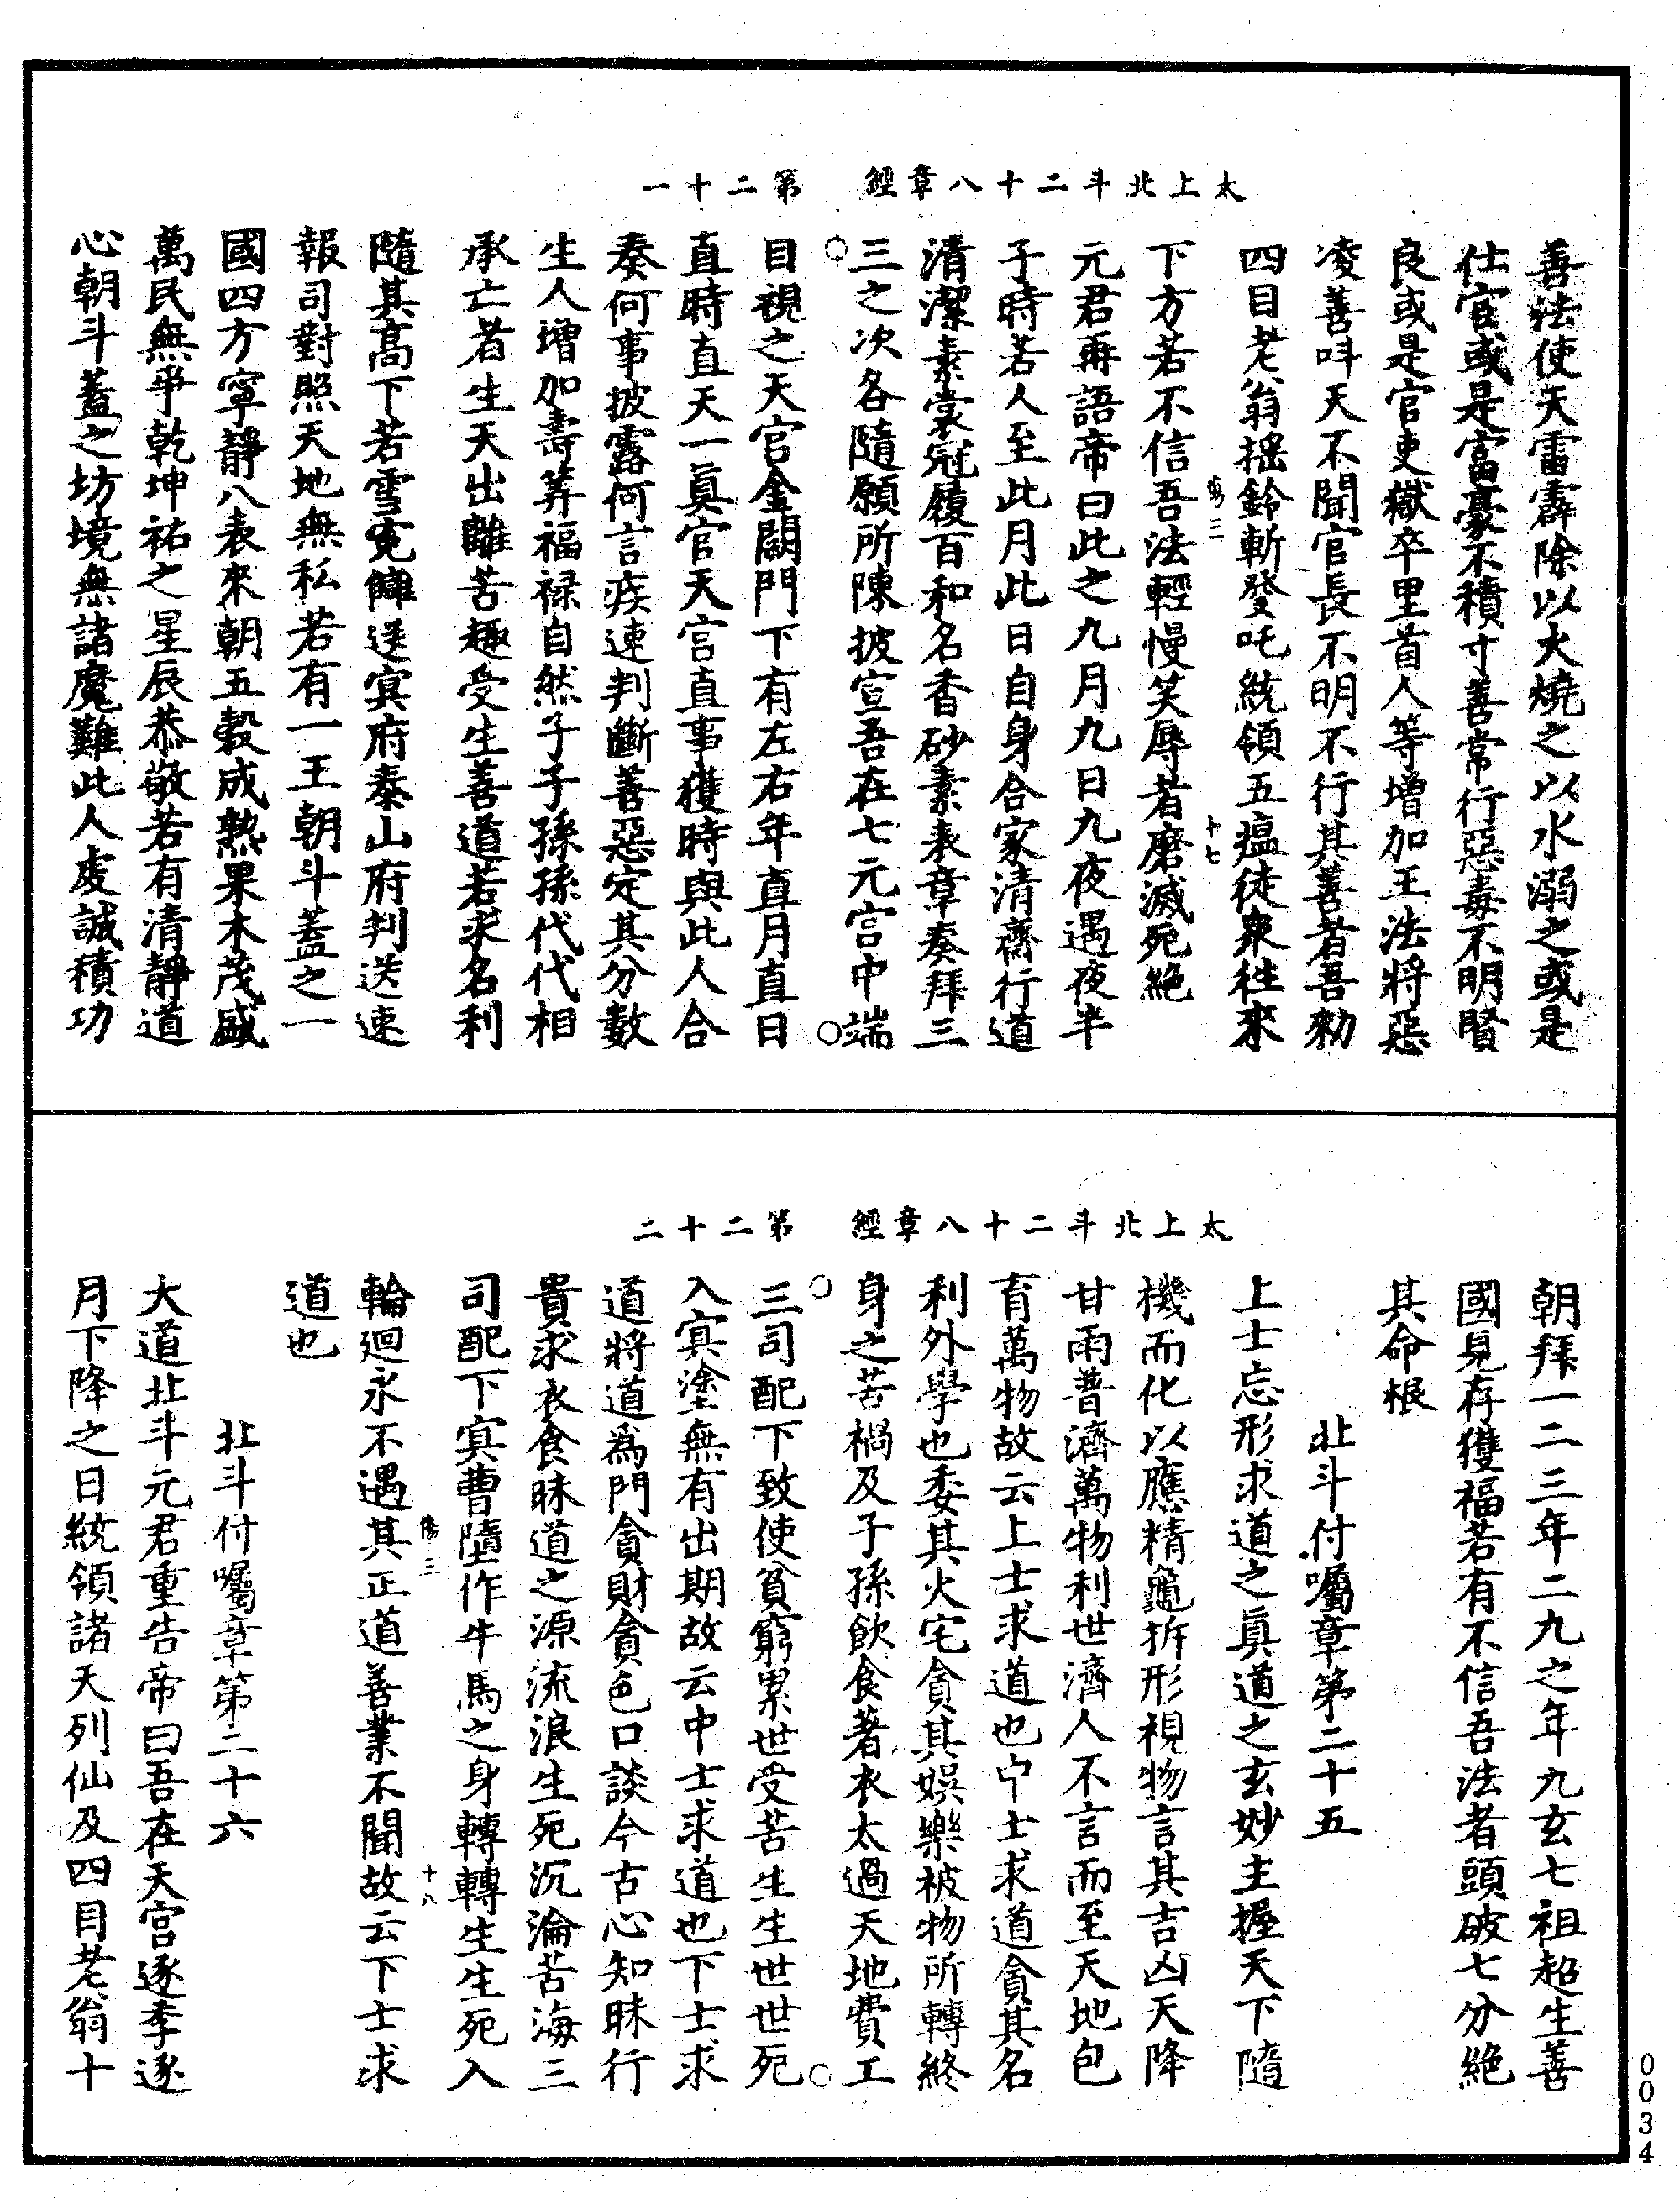 太上北斗二十八章經　第二十一
善法使天雷霹除以火燒之以水溺之或是
仕官或是富豪不積寸善常行惡毒不明賢
良或是官吏獄卒里首人等增加王法將惡
凌善呌天不聞官長不明不行其善者吾勑
四目老翁搖鈴斬發吒統領五瘟徒衆徃來
下方若不信吾法輕慢笑辱者磨滅死絶
傷三　十七
元君再語帝曰此之九月九日九夜遇夜半
子時若人至此月此日自身合家清齋行道
清潔素裳冠履百和名香砂素表章奏拜三
三之次各隨願所陳披宣吾在七元宫中端
目視之天官金闕門下有左右年直月直日
直時直天一眞官天宫直事獲時與此人合
奏何事披露何言疾速判斷善惡定其分數
生人增加壽筭福禄自然子子孫孫代代相
承亡者生天出離苦趣受生善道若求名利
隨其髙下若雪寃讎送寘府泰山府判送速
報司對照天地無私若有一王朝斗蓋之一
國四方寧靜八表來朝五穀成熟果木茂盛
萬民無爭乾坤祐之星辰恭敬若有清靜道
心朝斗蓋之坊境無諸魔難此人虔誠積功
太上北斗二十八章經　第二十二
朝拜一二三年二九之年九玄七祖超生善
國見存獲福若有不信吾法者頭破七分絶
其命根
北斗付囑章第二十五
上士忘形求道之眞道之玄妙主握天下隨
機而化以應精龜拆形視物言其吉凶天降
甘雨普濟萬物利世濟人不言而至天地包
育萬物故云上士求道也中士求道貪其名
利外學也委其火宅貪其娯樂被物所轉終
身之苦禍及子孫飲食著衣太過天地費工
三司配下致使貧窮累世受苦生生世世死
入寘塗無有出期故云中士求道也下士求
道將道爲門貪財貪色口談今古心知昧行
貴求衣食昧道之源流浪生死沉淪苦海三
司配下寘曹墮作牛馬之身轉轉生生死入
傷三　十八
輪迴永不遇其正道善業不聞故云下士求
道也
北斗付囑章第二十六
大道北斗元君重告帝曰吾在天宫逐季逐
月下降之日統領諸天列仙及四目老翁十
0034